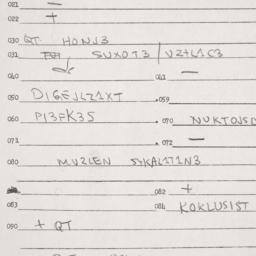 021 —
022 +
030 QT HONJ3
031 SUXOT3 / VZTL1C3
040 041 —
050 DIGEJLZ1XT 059
060 P13FK35 070 NUKTOJS
071 072 —
080 MVZLEN SYKAL1T1N3
082 +
083 084 KOKLUSIST
090 + QT